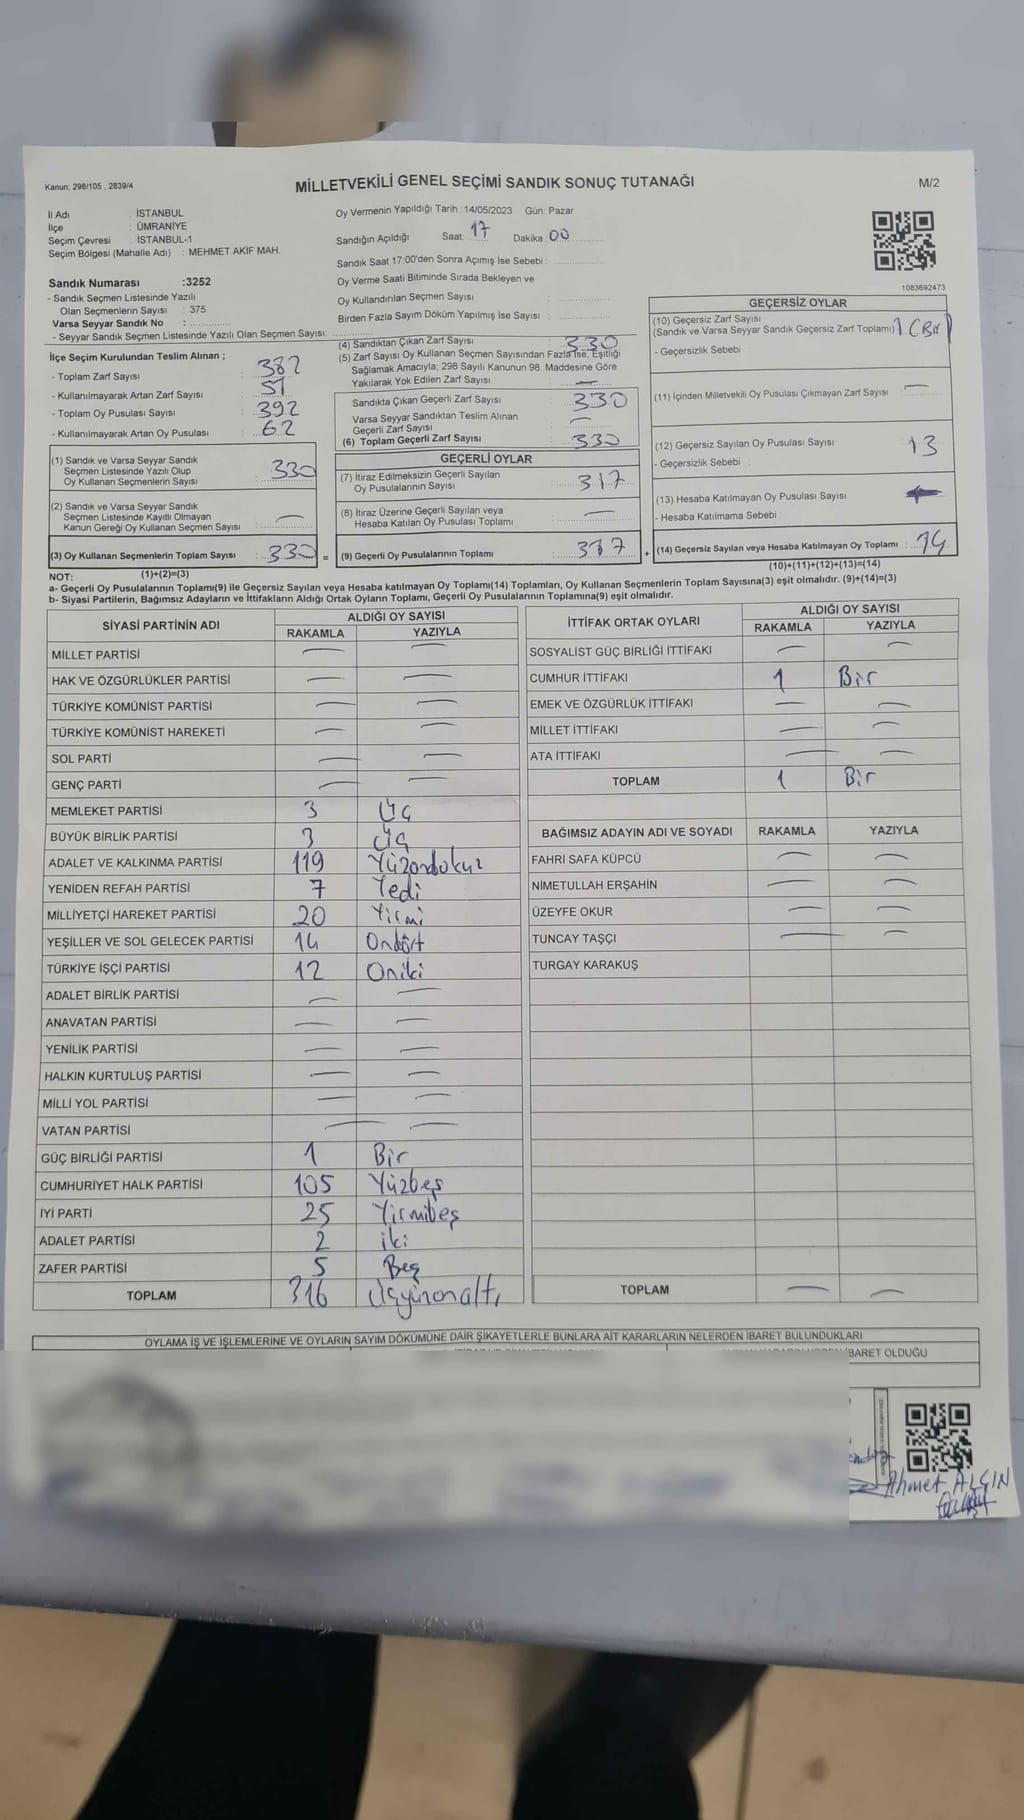 Kanun; 298/105 , 2839/4
MİLLETVEKİLİ GENEL SEÇİMİ SANDIK SONUÇ TUTANAĞI
M/2
İl Adı : İSTANBUL
İlçe : ÜMRANİYE
Seçim Çevresi : İSTANBUL-1
Seçim Bölgesi (Mahalle Adı) : MEHMET AKİF MAH.
Sandık Numarası :3252
- Sandık Seçmen Listesinde Yazılı
Olan Seçmenlerin Sayısı : 375
Varsa Seyyar Sandık No :
- Seyyar Sandık Seçmen Listesinde Yazılı Olan Seçmen Sayısı:
İlçe Seçim Kurulundan Teslim Alınan ;
- Toplam Zarf Sayısı :
- Kullanılmayarak Artan Zarf Sayısı :
- Toplam Oy Pusulası Sayısı : 392
- Kullanılmayarak Artan Oy Pusulası : 62
(1) Sandık ve Varsa Seyyar Sandık
Seçmen Listesinde Yazılı Olup
Oy Kullanan Seçmenlerin Sayısı : 330
(2) Sandık ve Varsa Seyyar Sandık
Seçmen Listesinde Kayıtlı Olmayan
Kanun Gereği Oy Kullanan Seçmen Sayısı : —
(3) Oy Kullanan Seçmenlerin Toplam Sayısı : 330 =
(1)+(2)=(3)
Oy Vermenin Yapıldığı Tarih :14/05/2023 Gün: Pazar
Sandığın Açıldığı Saat: 17 Dakika 00
Sandık Saat 17:00'den Sonra Açımış İse Sebebi :
Oy Verme Saati Bitiminde Sırada Bekleyen ve
Oy Kullandırılan Seçmen Sayısı :
Birden Fazla Sayım Döküm Yapılmış İse Sayısı :
(4) Sandıktan Çıkan Zarf Sayısı : 330
(5) Zarf Sayısı Oy Kullanan Seçmen Sayısından Fazla İse, Eşitliği
Sağlamak Amacıyla; 298 Sayılı Kanunun 98. Maddesine Göre
Yakılarak Yok Edilen Zarf Sayısı : —
Sandıkta Çıkan Geçerli Zarf Sayısı : 330
Varsa Seyyar Sandıktan Teslim Alınan
Geçerli Zarf Sayısı : —
(6) Toplam Geçerli Zarf Sayısı : 330
GEÇERLİ OYLAR
(7) İtiraz Edilmeksizin Geçerli Sayılan
Oy Pusulalarının Sayısı : 317
(8) İtiraz Üzerine Geçerli Sayılan veya
Hesaba Katılan Oy Pusulası Toplamı : —
(9) Geçerli Oy Pusulalarının Toplamı : 317 +
1083692473
GEÇERSİZ OYLAR
(10) Geçersiz Zarf Sayısı
(Sandık ve Varsa Seyyar Sandık Geçersiz Zarf Toplamı) 1 (Bir)
- Geçersizlik Sebebi :
(11) İçinden Milletvekili Oy Pusulası Çıkmayan Zarf Sayısı : —
(12) Geçersiz Sayılan Oy Pusulası Sayısı : 13
- Geçersizlik Sebebi :
(13) Hesaba Katılmayan Oy Pusulası Sayısı :
- Hesaba Katılmama Sebebi :
(14) Geçersiz Sayılan veya Hesaba Katılmayan Oy Toplamı : 14
(10)+(11)+(12)+(13)=(14)
NOT:
a- Geçerli Oy Pusulalarının Toplamı(9) ile Geçersiz Sayılan veya Hesaba katılmayan Oy Toplamı(14) Toplamları, Oy Kullanan Seçmenlerin Toplam Sayısına(3) eşit olmalıdır. (9)+(14)=(3)
b- Siyasi Partilerin, Bağımsız Adayların ve İttifakların Aldığı Ortak Oyların Toplamı, Geçerli Oy Pusulalarının Toplamına(9) eşit olmalıdır.
SİYASİ PARTİNİN ADI ALDIĞI OY SAYISI
RAKAMLA YAZIYLA
MİLLET PARTİSİ — —
HAK VE ÖZGÜRLÜKLER PARTİSİ — —
TÜRKİYE KOMÜNİST PARTİSİ — —
TÜRKİYE KOMÜNİST HAREKETİ — —
SOL PARTİ — —
GENÇ PARTİ — —
MEMLEKET PARTİSİ 3 Üç
BÜYÜK BİRLİK PARTİSİ 3 Üç
ADALET VE KALKINMA PARTİSİ 119 Yüzondokuz
YENİDEN REFAH PARTİSİ 7 Yedi
MİLLİYETÇİ HAREKET PARTİSİ 20 Yirmi
YEŞİLLER VE SOL GELECEK PARTİSİ 14 Ondört
TÜRKİYE İŞÇİ PARTİSİ 12 Oniki
ADALET BİRLİK PARTİSİ — —
ANAVATAN PARTİSİ — —
YENİLİK PARTİSİ — —
HALKIN KURTULUŞ PARTİSİ — —
MİLLİ YOL PARTİSİ — —
VATAN PARTİSİ — —
GÜÇ BİRLİĞİ PARTİSİ 1 Bir
CUMHURİYET HALK PARTİSİ 105 Yüzbeş
İYİ PARTİ 25 Yirmibeş
ADALET PARTİSİ 2 iki
ZAFER PARTİSİ 5 Beş
TOPLAM 316 Üçyüzonaltı
İTTİFAK ORTAK OYLARI ALDIĞI OY SAYISI
RAKAMLA YAZIYLA
SOSYALİST GÜÇ BİRLİĞİ İTTİFAKI — —
CUMHUR İTTİFAKI 1 Bir
EMEK VE ÖZGÜRLÜK İTTİFAKI — —
MİLLET İTTİFAKI — —
ATA İTTİFAKI — —
TOPLAM 1 Bir
BAĞIMSIZ ADAYIN ADI VE SOYADI RAKAMLA YAZIYLA
FAHRİ SAFA KÜPCÜ — —
NİMETULLAH ERŞAHİN — —
ÜZEYFE OKUR — —
TUNCAY TAŞÇI — —
TURGAY KARAKUŞ
TOPLAM — —
OYLAMA İŞ VE İŞLEMLERİNE VE OYLARIN SAYIM DÖKÜMÜNE DAİR ŞİKAYETLERLE BUNLARA AİT KARARLARIN NELERDEN İBARET BULUNDUKLARI
İBARET OLDUĞU
Ahmet ALÇIN